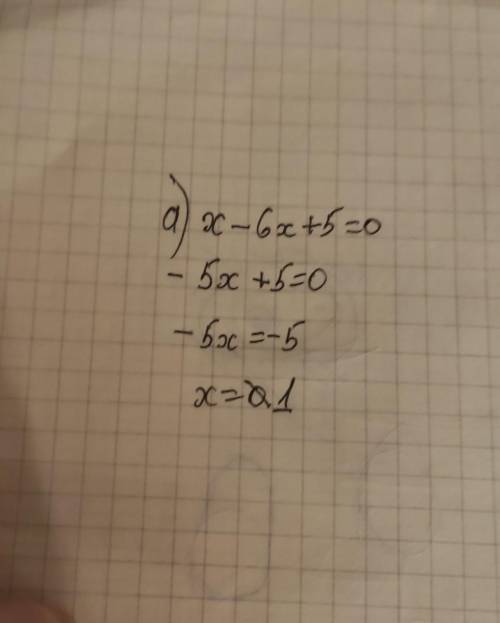 а) x - 6x + 5 = 0
- 5x + 5 = 0
- 5x = -5
x = 1